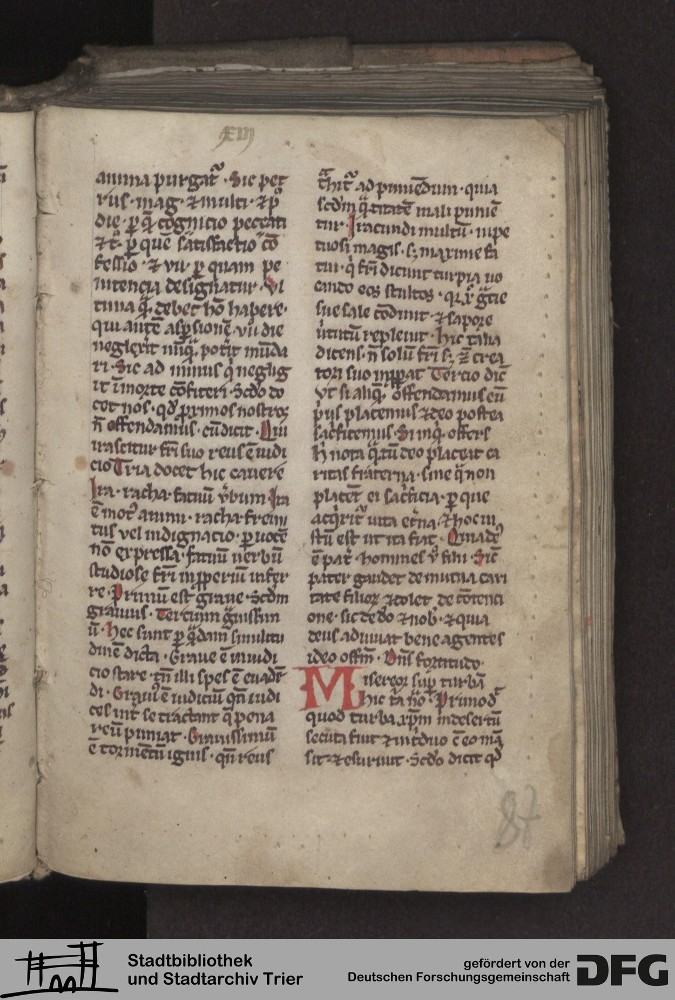 anima purgat᷑ · Sic pet
rus · mag · ⁊ multi · ⁊ p̄
die · ꝑ q̄ cognicio peccati
⁊ t̄ · ꝑ quē satisfactio cō
fessio · ⁊ vii · ꝑ quam pe
nitencia designatur · Vl
tima q̄ · debet hō habere ·
qui autē aspsionē · vii die
neglexit nūq̄ · potit mūda
ri · Sic ad minus q̄ neglig
it ī morte cōfiteri · Scdo do
cet nos · qd ꝓximos nostros
n̄ offendamus · cū dicit · Qui
irascitur fri suo reus ē iudi
cio Tria docet hic cavere
Ira · racha · fatuū v̄bum · Ira
ē mot᷒ animi · racha · fremi
tus vel indignacio · ꝑ uocē
nō expressa · fatuū uerbū
studiose fri īꝓperiū infer
re · Primū est graue · Scdm
grauius · Tercium gͣuissim
ū · Hec sunt ꝑ q̄dam similitu
dinē dicta · Graue ē inuidi
cio stare · tn̄ illi spes ē euadē
di · Grauiꝰ ē iudiciū qn̄ iudi
ces int̄ se tractant q̄ pena
reū puniat · Grauissimū
ē tormentū ignis · qn̄ reus
t̄hit᷑ ad puniēdum · quia
scdm q̄titatē mali puniē
tur · Iracundi multū · inpe
tuosi magis · sꝫ maxime fa
tui · q̄ fri dicunt turpia uo
cando eos stultos · qr xp̄ gͣtie
sue sale condiuit · ⁊ sapore
repleuit · Hic talia
dicens · n̄ solū fri sꝫ ⁊ crea
tori suo inꝓperat Tercio dic̄
Vt si aliq̄ · offendamus eū
pͥus placemus ⁊ deo postea
sacͥficemus · Si inq̄ · offers
h̄ nota q̄tū deo placeat ca
ritas fraterna · sine q̄ non
placēt ei sacͥficia · ꝑ que
acqͥrit᷑ uita et̄na · ⁊ hoc iu
stū est ut ita fiat ·
ē pat̄ · homines v̄ filii · Sic̄
pater gaudet de mutua cari
tate filiorꝫ ⁊ dolet de contenci
one · sic deꝰ do nob · ⁊ quia
deus adiuuat bene agentes
ideo offm̄ · Dn̄s fortitudo
Misereor suꝑ turbā
hic t̄a nō · Primo qd
quod turba xp̄m in desertū
secuta fuit ⁊ īͥduo ē eo mā
sit · ⁊ esuriuit · Scdo dicit qd
87
Stadtbibliothek
und Stadtarchiv Trier
gefördert von der
Deutschen Forschungsgemeinschaft
DFG